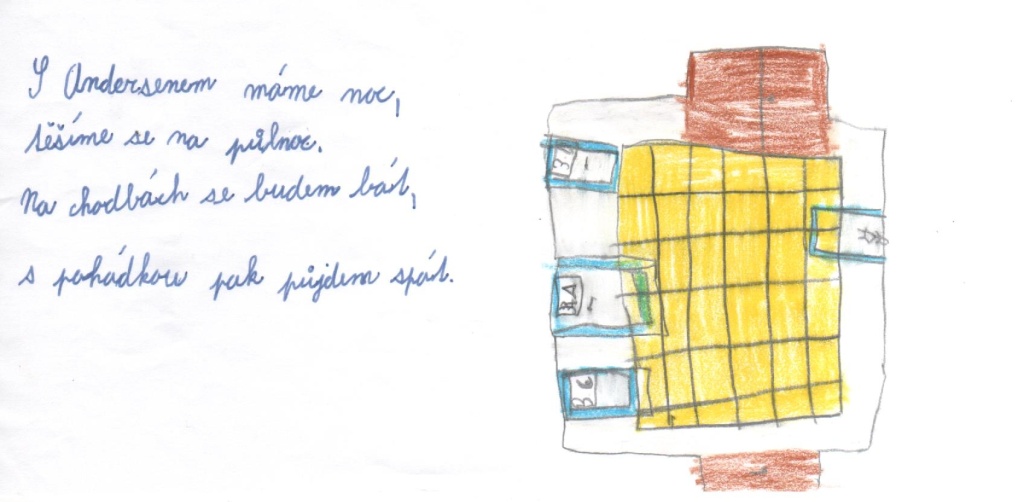 S Andersenem máme noc,
těšíme se na půlnoc.
Na chodbách se budem bát,
s pohádkou pak půjdem spát.
3.A
3.C